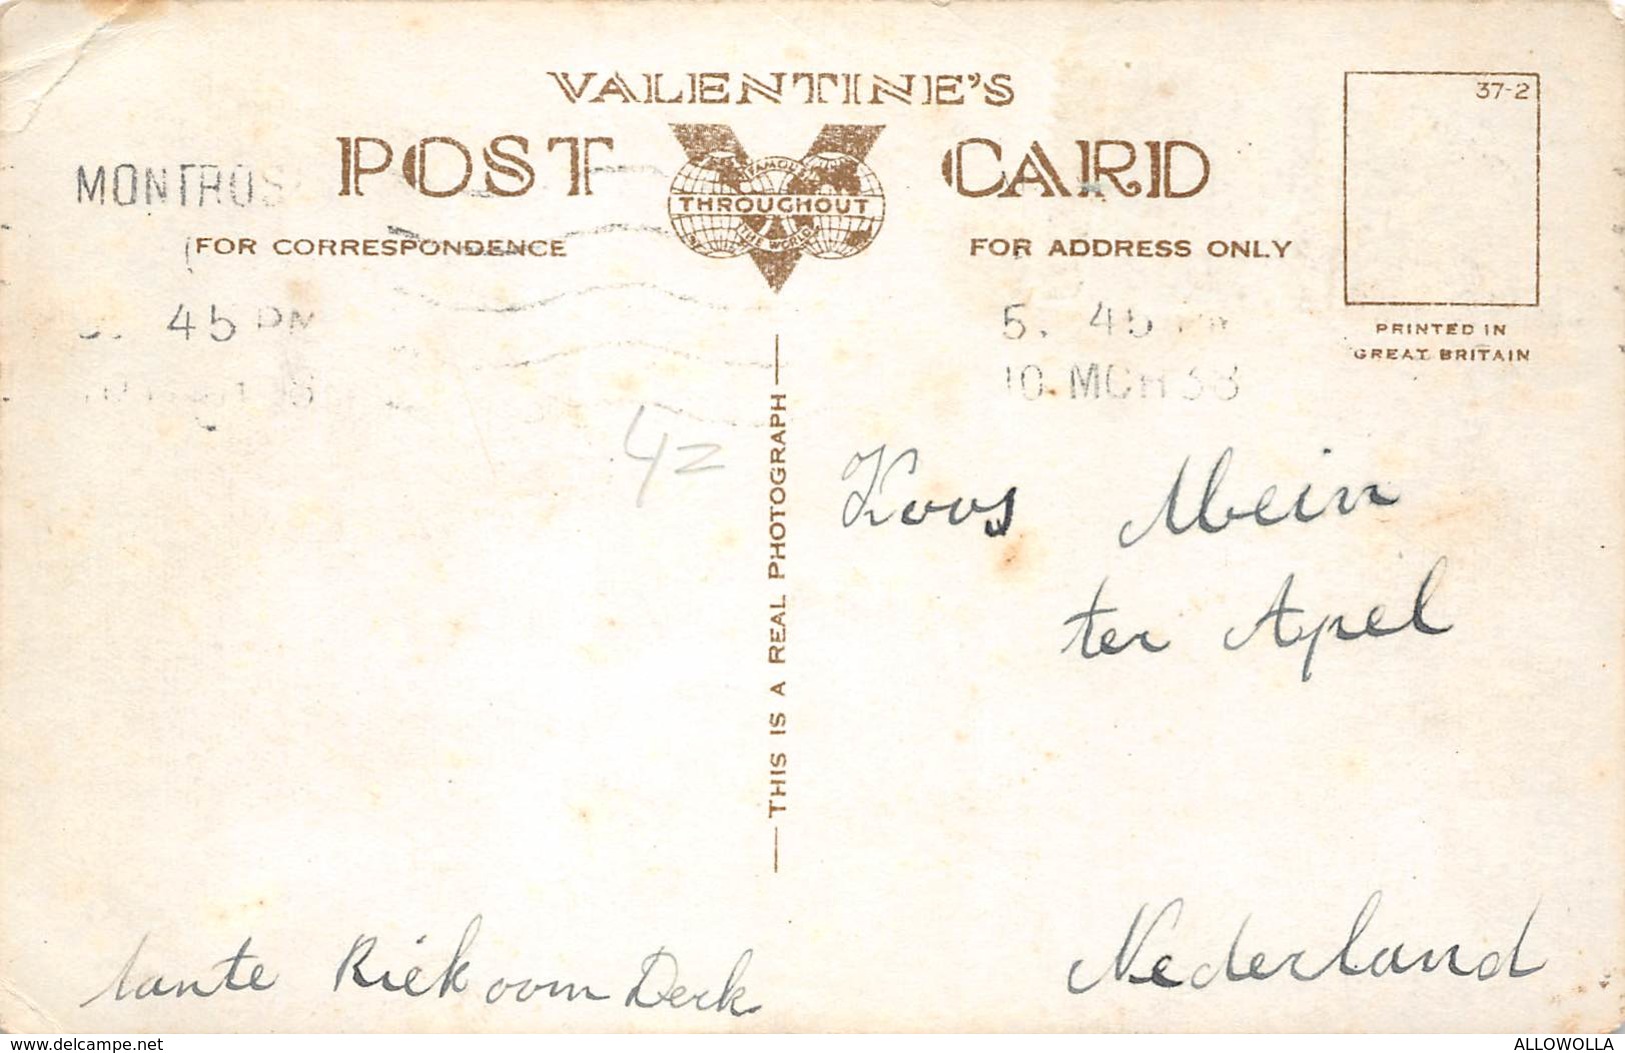 VALENTINE'S
POST CARD
37-2
FAMOUS
THROUGHOUT
THE WORLD
MONTROS
FOR CORRESPONDENCE
FOR ADDRESS ONLY
PRINTED IN
GREAT BRITAIN
45 PM
5. 45
10 MCH 38
42
THIS IS A REAL PHOTOGRAPH
Koos Mein
ter Apel
Nederland
tante Riek oom Derk
www.delcampe.net
ALLOWOLLA